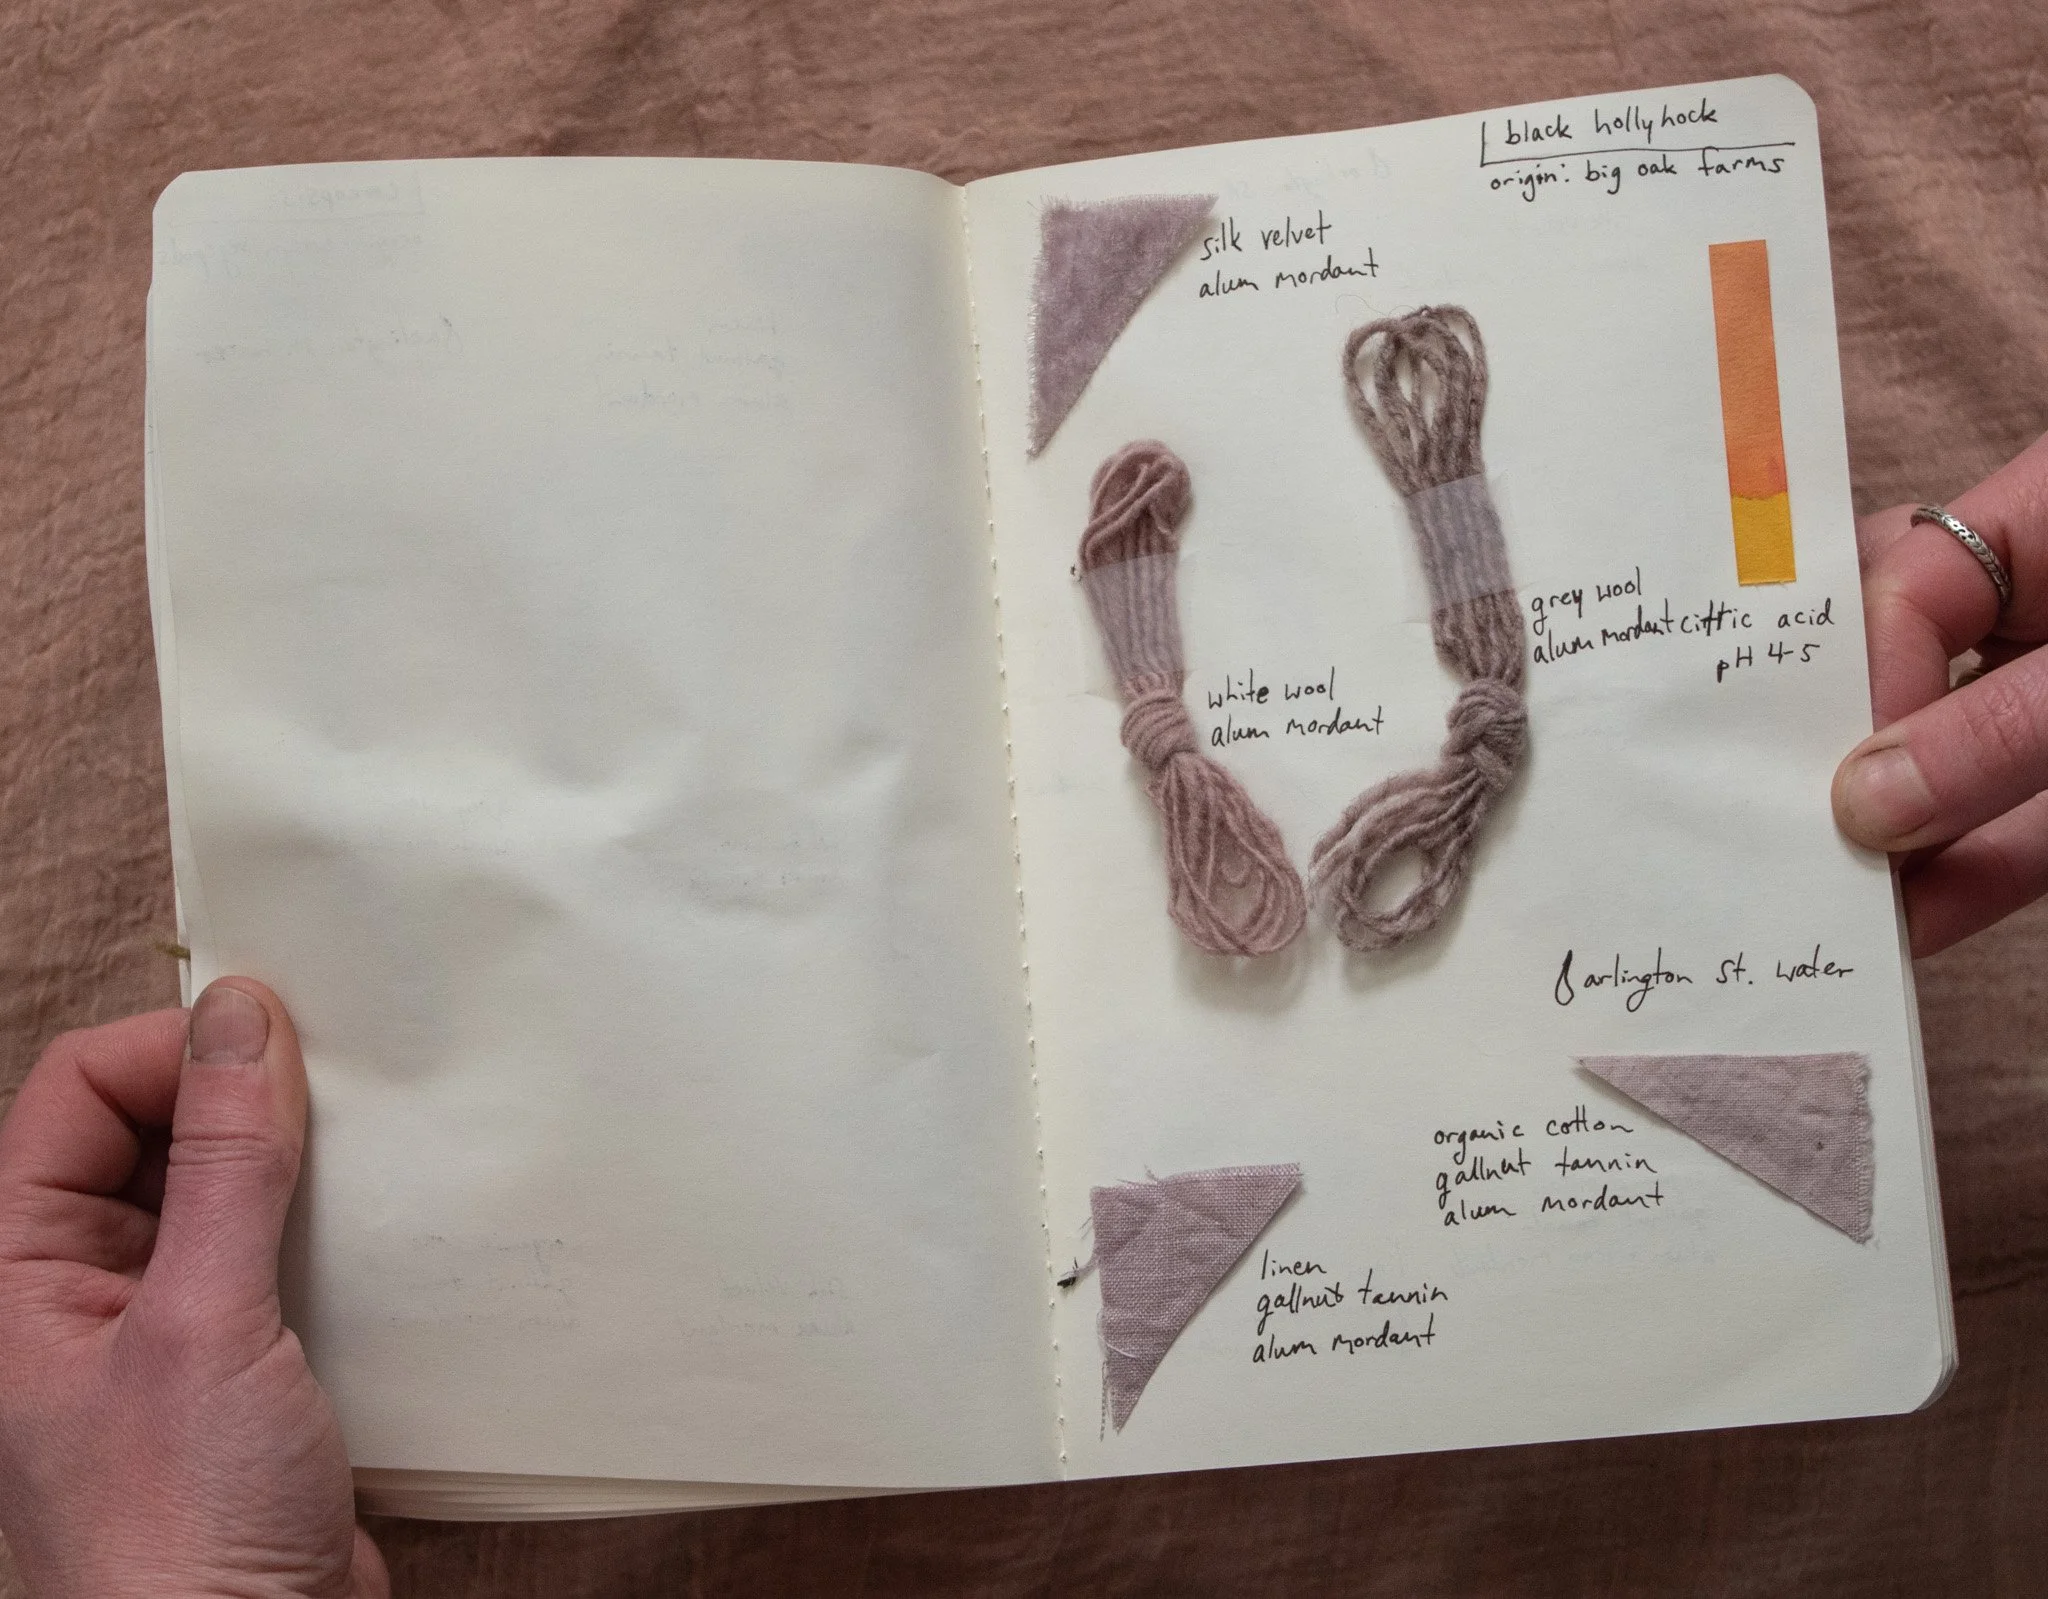 black hollyhock
origin: big oak farms
silk velvet
alum mordant
grey wool
alum mordant
cittric acid
pH 4-5
white wool
alum mordant
arlington st. water
organic cotton
gallnut tannin
alum mordant
linen
gallnut tannin
alum mordant